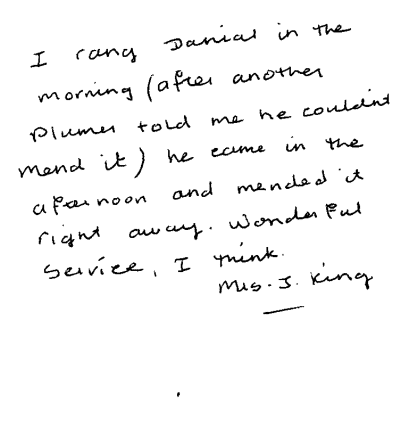 I rang Danial in the
morning (after another
Plumer told me he couldn't
mend it) he came in the
afternoon and mended it
right away. Wonderful
Service, I think.
Mrs. J. King